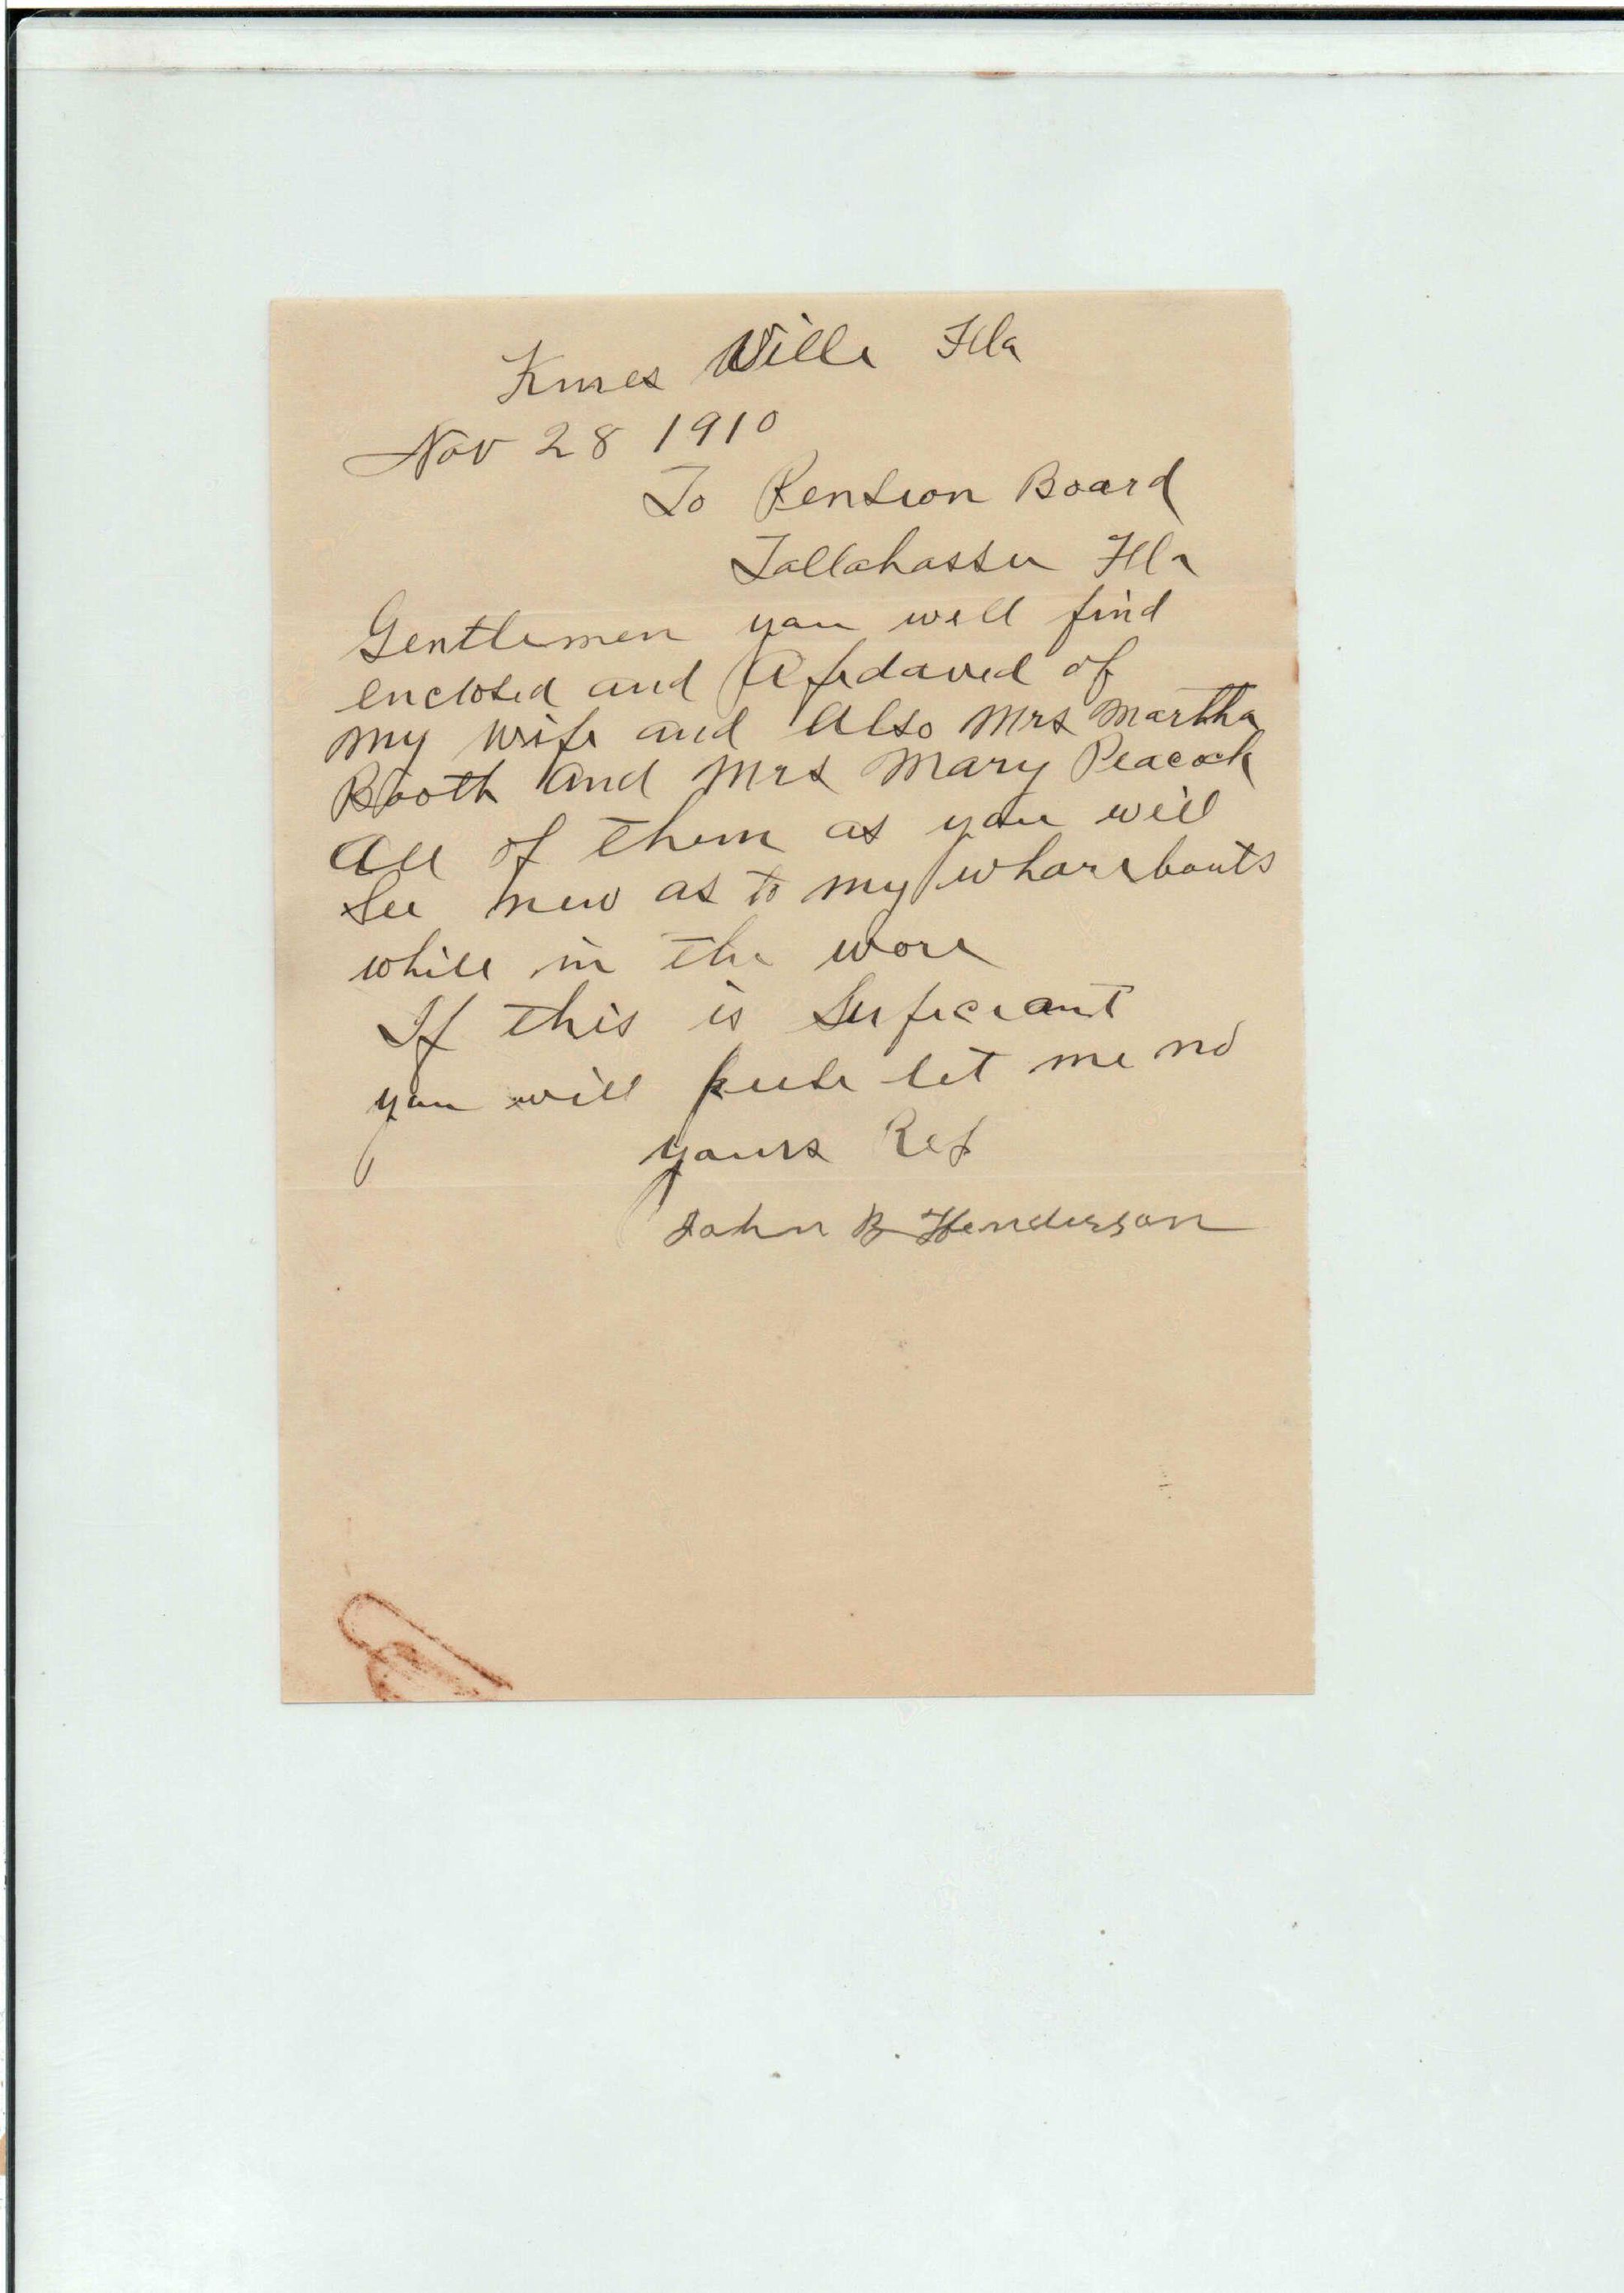 Kines Ville Fla
Nov 28 1910
To Pension Board
Tallahassee Fla
Gentlemen you will find
enclosed and Afedaved of
my wife and Also Mrs Martha
Booth And Mrs Mary Peacock
All of them as you will
See new as to my wharebouts
while in the wore
If this is Suficiant
you will let me no
yours Res
John B Henderson